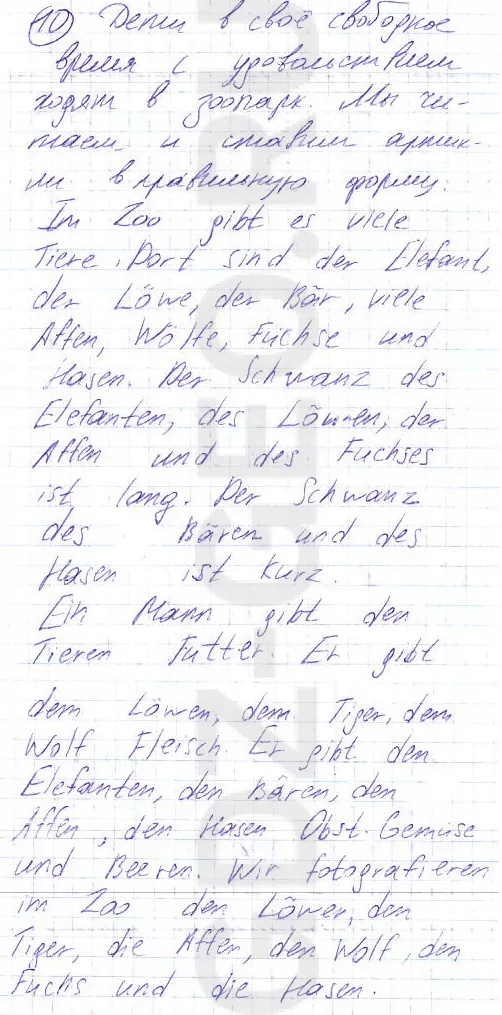 10 Дети в своё свободное
время с удовольствием
ходят в зоопарк. Мы чи-
таем и ставим артик-
ли в правильную форму.
Im Zoo gibt es viele
Tiere. Dort sind der Elefant,
der Löwe, der Bär, viele
Affen, Wölfe, Füchse und
Hasen. Der Schwanz des
Elefanten, des Löwen, der
Affen und des Fuchses
ist lang. Der Schwanz
des Bären und des
Hasen ist kurz.
Ein Mann gibt den
Tieren Futter. Er gibt
dem Löwen, dem Tiger, dem
Wolf Fleisch. Er gibt den
Elefanten, den Bären, den
Affen, den Hasen Obst. Gemüse
und Beeren. Wir fotografieren
im Zoo den Löwen, den
Tiger, die Affen, den Wolf, den
Fuchs und die Hasen.
GDZ-GEO.RU